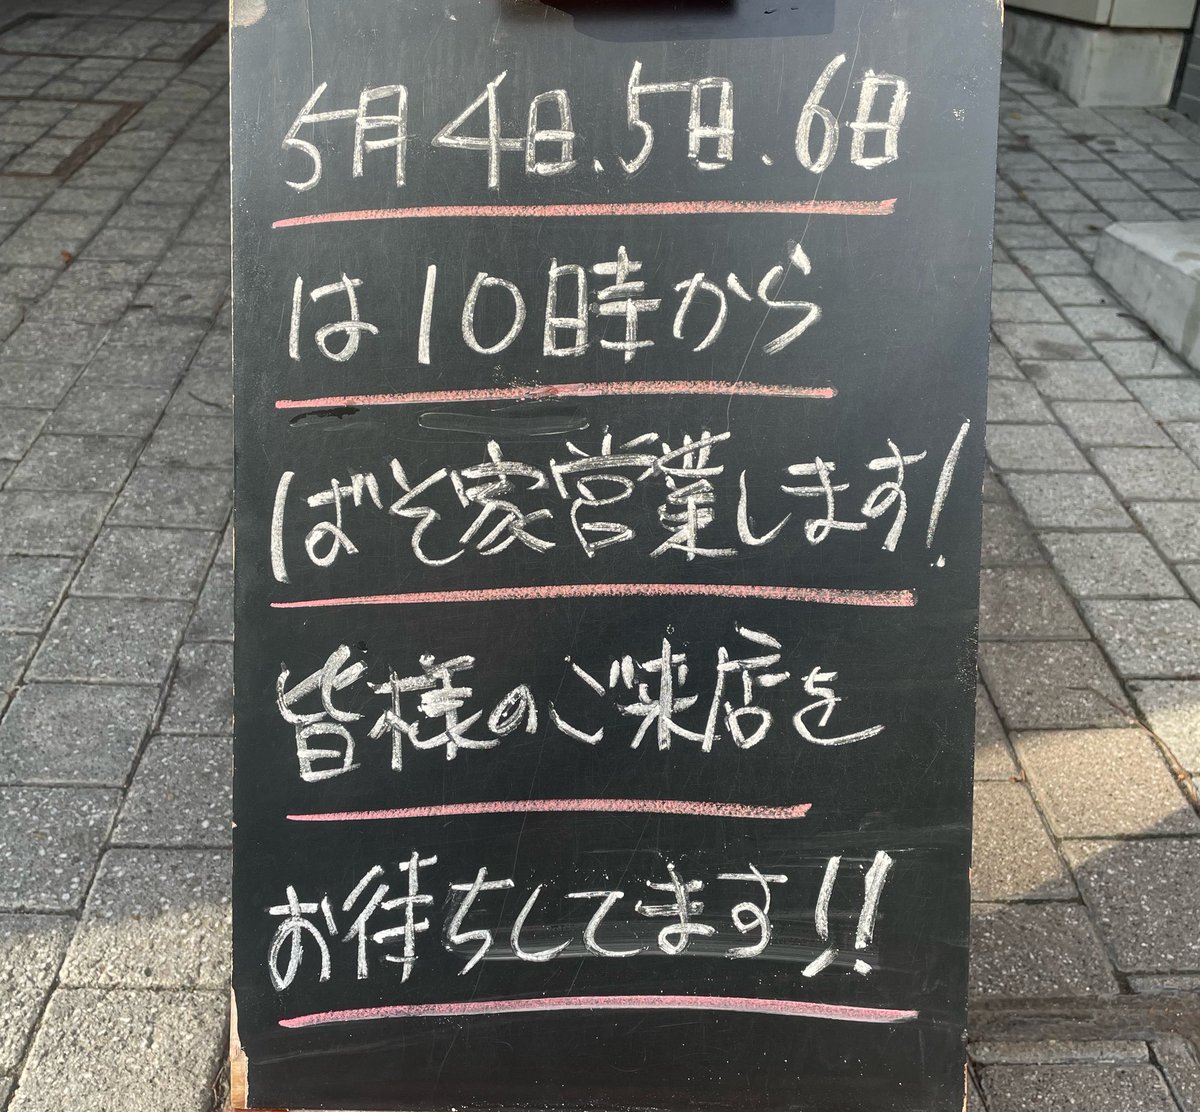 5月4日.5日.6日
は10時から
ばそ家営業します!
皆様のご来店を
お待ちしてます!!